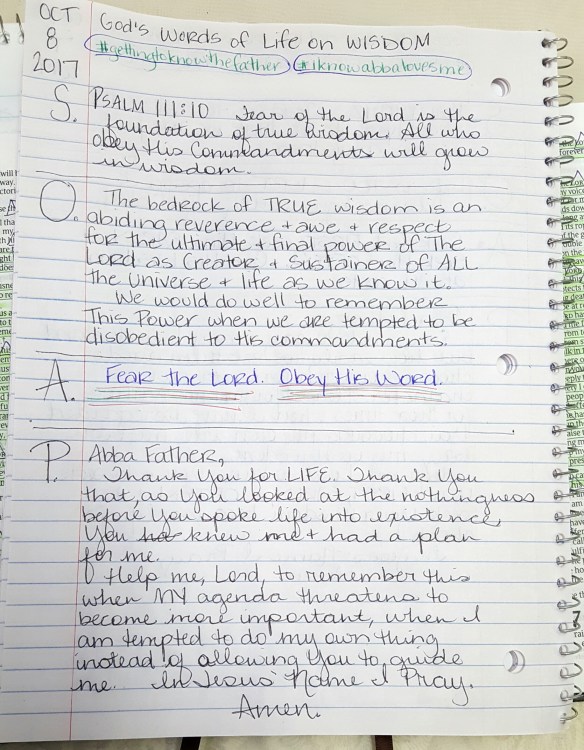 OCT
8
2017
God's Words of Life on WISDOM
#gettingtoknowthefather #iknowabbalovesme
S. PSALM 111:10 Fear of the Lord is the
foundation of true wisdom. All who
obey His Commandments will grow
in wisdom.
O. The bedrock of TRUE wisdom is an
abiding reverence + awe + respect
for the ultimate + final power of The
LORD as Creator + Sustainer of ALL
the Universe + life as we know it.
We would do well to remember
This Power when we are tempted to be
disobedient to His commandments.
A. Fear the Lord. Obey His Word.
P. Abba Father,
Thank You for LIFE. Thank You
that, as You looked at the nothingness
before You spoke life into existence,
You knew me + had a plan
for me.
Help me, Lord, to remember this
when MY agenda threatens to
become more important, when I
am tempted to do my own thing
instead of allowing You to guide
me. In Jesus' Name I Pray.
Amen.